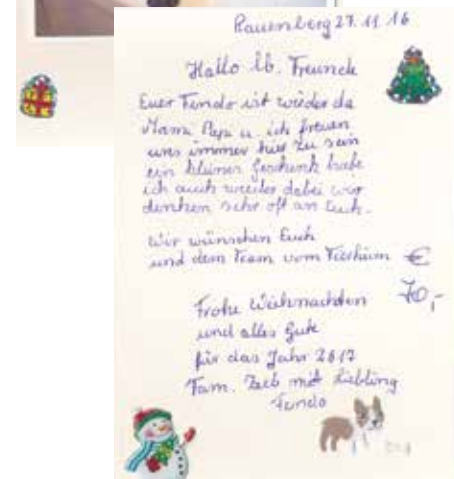 Rauenberg 27.11.16
Hallo lb. Freunde
Euer Fundo ist wieder da
Mama Papa u. ich freuen
uns immer hier zu sein
ein kleines Geschenk habe
ich auch wieder dabei wir
denken sehr oft an Euch.
Wir wünschen Euch
und dem Team vom Tierheim €
70,-
Frohe Weihnachten
und alles Gute
für das Jahr 2017
Fam. mit Liebling
Fundo